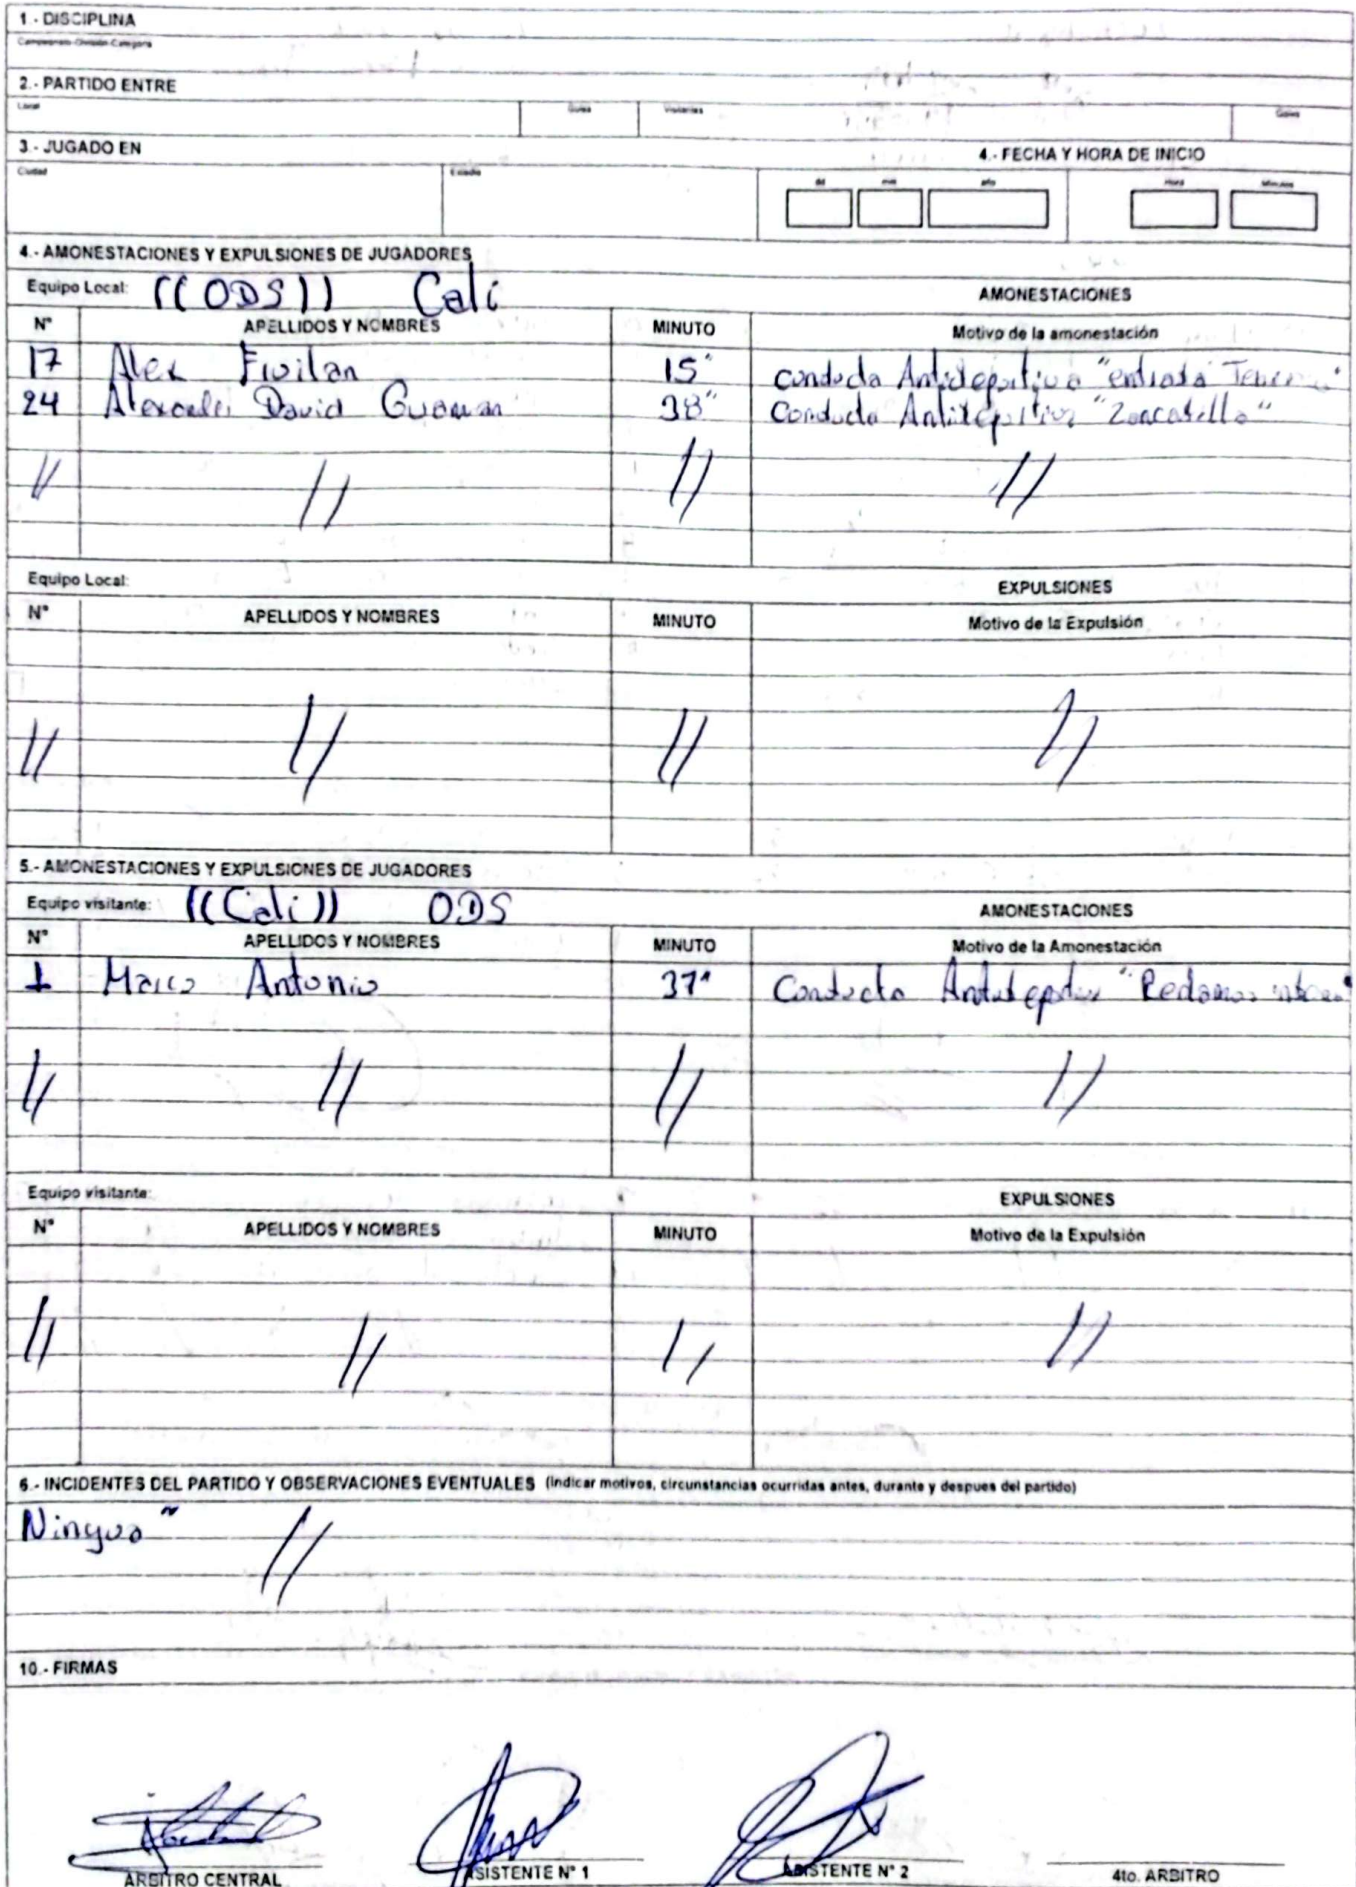 1.- DISCIPLINA
Campeonato-División-Categoría
2.- PARTIDO ENTRE
Local Goles Visitantes Goles
3.- JUGADO EN 4.- FECHA Y HORA DE INICIO
Ciudad Estadio dd mm año Hora Minutos
4.- AMONESTACIONES Y EXPULSIONES DE JUGADORES
Equipo Local: ((ODS)) Cali AMONESTACIONES
N° APELLIDOS Y NOMBRES MINUTO Motivo de la amonestación
17 Alex 15" conducta Antideportiva "entrada
24 David Guaman 38" Conducta Antideportiva "Zancadilla"
// // // //
Equipo Local: EXPULSIONES
N° APELLIDOS Y NOMBRES MINUTO Motivo de la Expulsión
// // // //
5.- AMONESTACIONES Y EXPULSIONES DE JUGADORES
Equipo visitante: ((Cali)) ODS AMONESTACIONES
N° APELLIDOS Y NOMBRES MINUTO Motivo de la Amonestación
1 Marco Antonio 37" Conducta "Reclamos
// // // //
Equipo visitante: EXPULSIONES
N° APELLIDOS Y NOMBRES MINUTO Motivo de la Expulsión
// // // //
6.- INCIDENTES DEL PARTIDO Y OBSERVACIONES EVENTUALES (Indicar motivos, circunstancias ocurridas antes, durante y despues del partido)
//
10.- FIRMAS
ARBITRO CENTRAL ASISTENTE N° 1 ASISTENTE N° 2 4to. ARBITRO